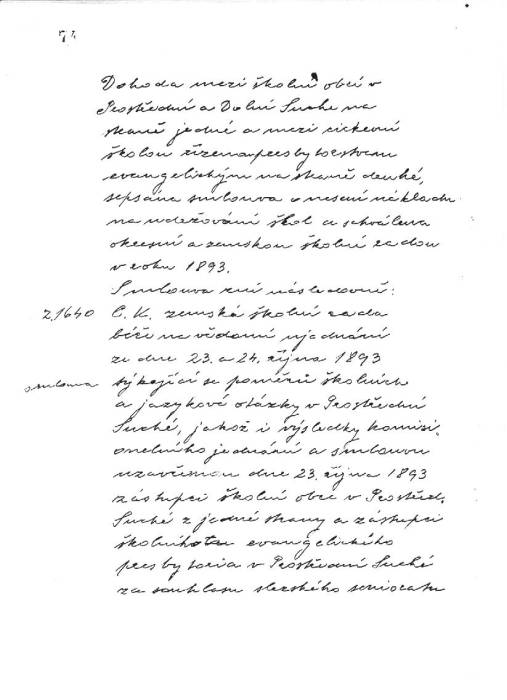 74
Dohoda mezi školní obcí v
Prostřední a Dolní Suché na
straně jedné a mezi církevní
školou řízenou presbyterstvem
evangelickým na straně druhé,
sepsána smlouva o nesení nákladu
na udržování škol a schválena
okresní a zemskou školní radou
v roku 1893.
Smlouva zní následovně:
Z 1640 C. K. zemská školní rada
béře na vědomí ujednání
ze dne 23. a 24. října 1893
smlouva týkající se poměrů školních
a jazykové otázky v Prostřední
Suché, jakož i výsledky komisi
onelního jednání a smlouvu
uzavřenou dne 23. října 1893
zástupci školní obce v Prostřed.
Suché z jedné strany a zástupci
školního evangelického
presbyteria v Prostřední Suché
za souhlasu slezského seniorátu